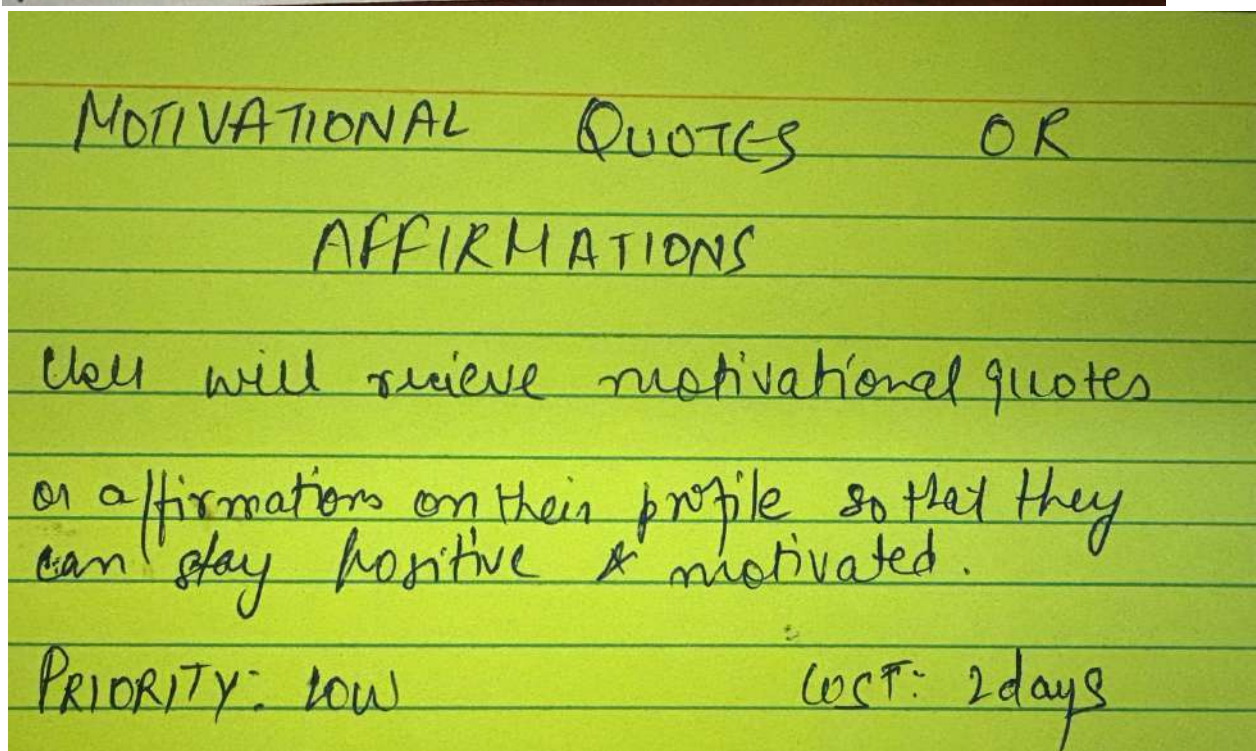 MOTIVATIONAL QUOTES OR
AFFIRMATIONS
User will recieve motivational quotes
or affirmations on their profile so that they
can stay positive & motivated.
PRIORITY: LOW COST: 2days